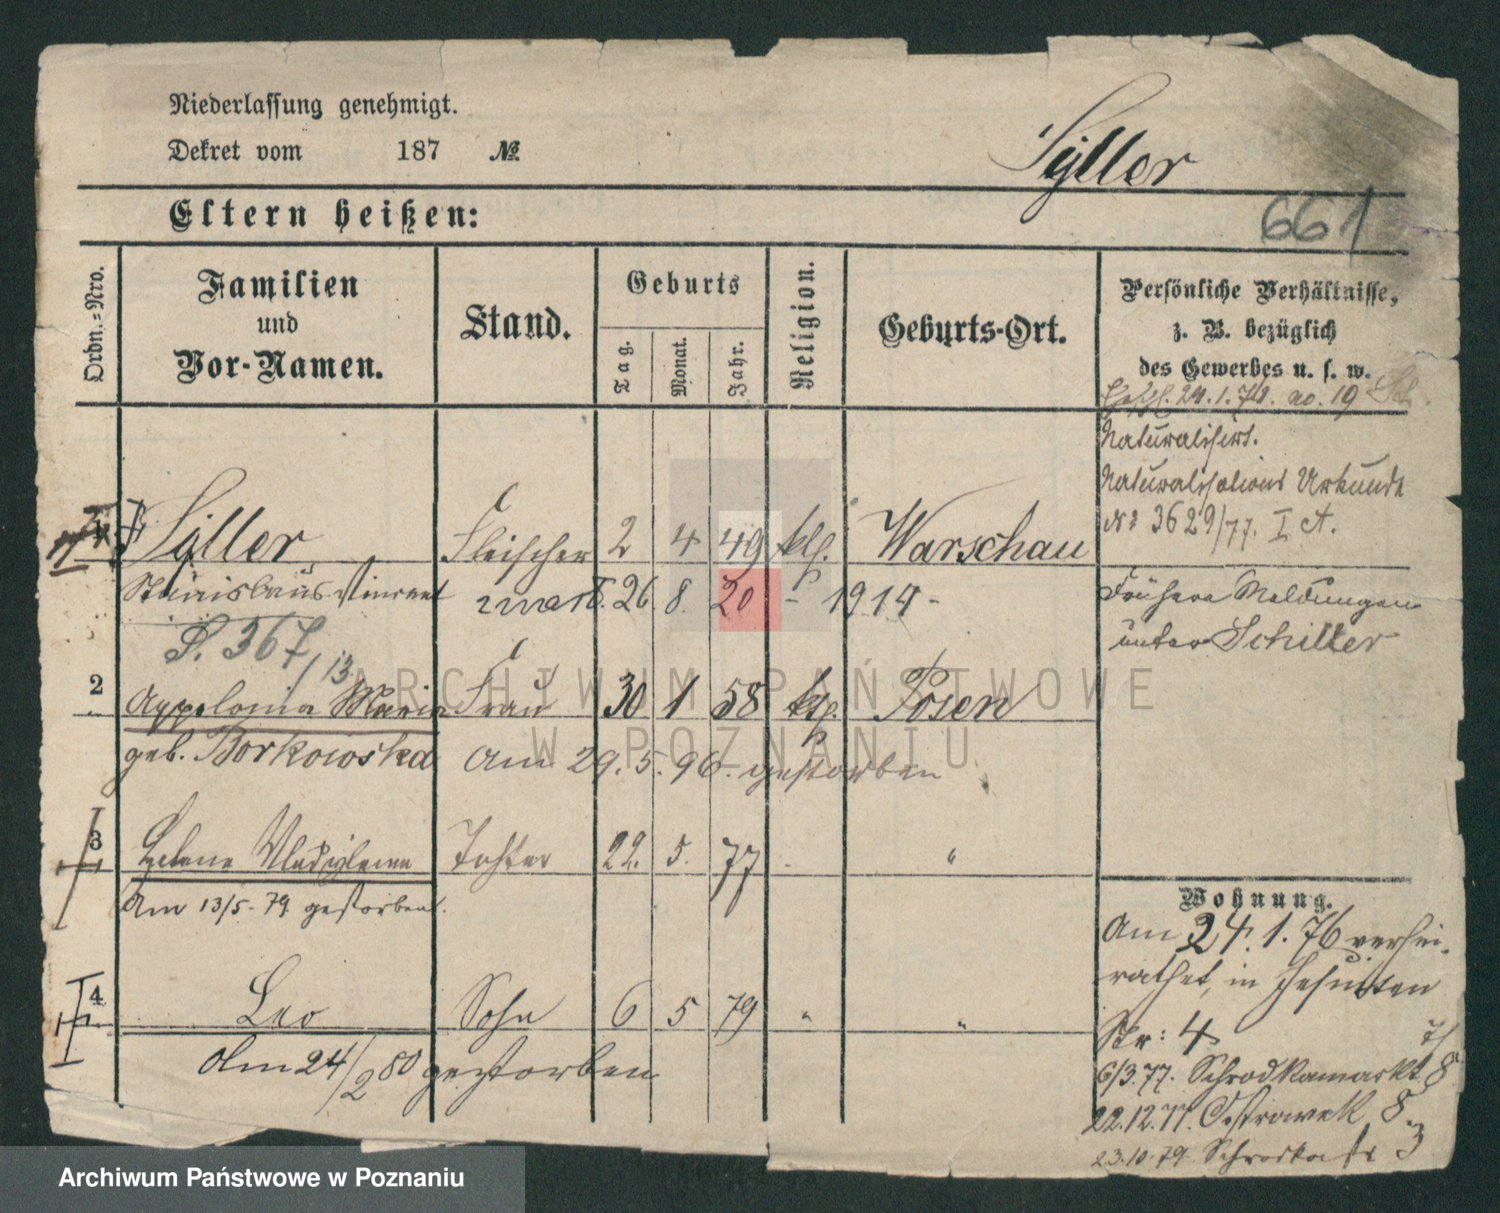 Niederlassung genehmigt.
Dekret vom 187 №
Syller
Eltern heißen:
661
Ordn.-Nro.
Familien
und
Vor-Namen.
Stand.
Geburts
Tag.
Monat.
Jahr.
Religion.
Geburts-Ort.
Persönliche Verhältnisse,
z. B. bezüglich
des Gewerbes u. s. w.
24.1.74. no. 19
Naturalisirt.
Naturalisations Urkunde
№ 3629/77. I A.
1 Syller Fleischer 2 4 49 kth. Warschau
Stanislaus Vincent 26. 8. 20 - 1914 -
Frühere Meldungen
unter Schiller
S. 367/13
2 Appolonia Maria Frau 30 1 58 kth. Posen
geb. Borkowska Am 29.5.96. gestorben
3 Helene Tochter 22. 5. 77 - "
Am 13/5-79 gestorben.
4 Leo Sohn 6 5 79 " "
Am 24/2 80 gestorben
Wohnung.
Am 24.1.76 verhei-
rathet, in Jesuiten
Str: 4
6/3.77. Schrodkamarkt 8
22.12.77. Ostrowek 8.
23.10.79 3
ARCHIWUM PAŃSTWOWE
W POZNANIU
Archiwum Państwowe w Poznaniu